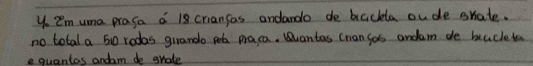 4. Em uma prasa á 18 crianças andando de bicicleta ou de skate.
no total a 50 rodas girando pela praça. Quantas crianças andam de bicicleta
e quantos andam de skate